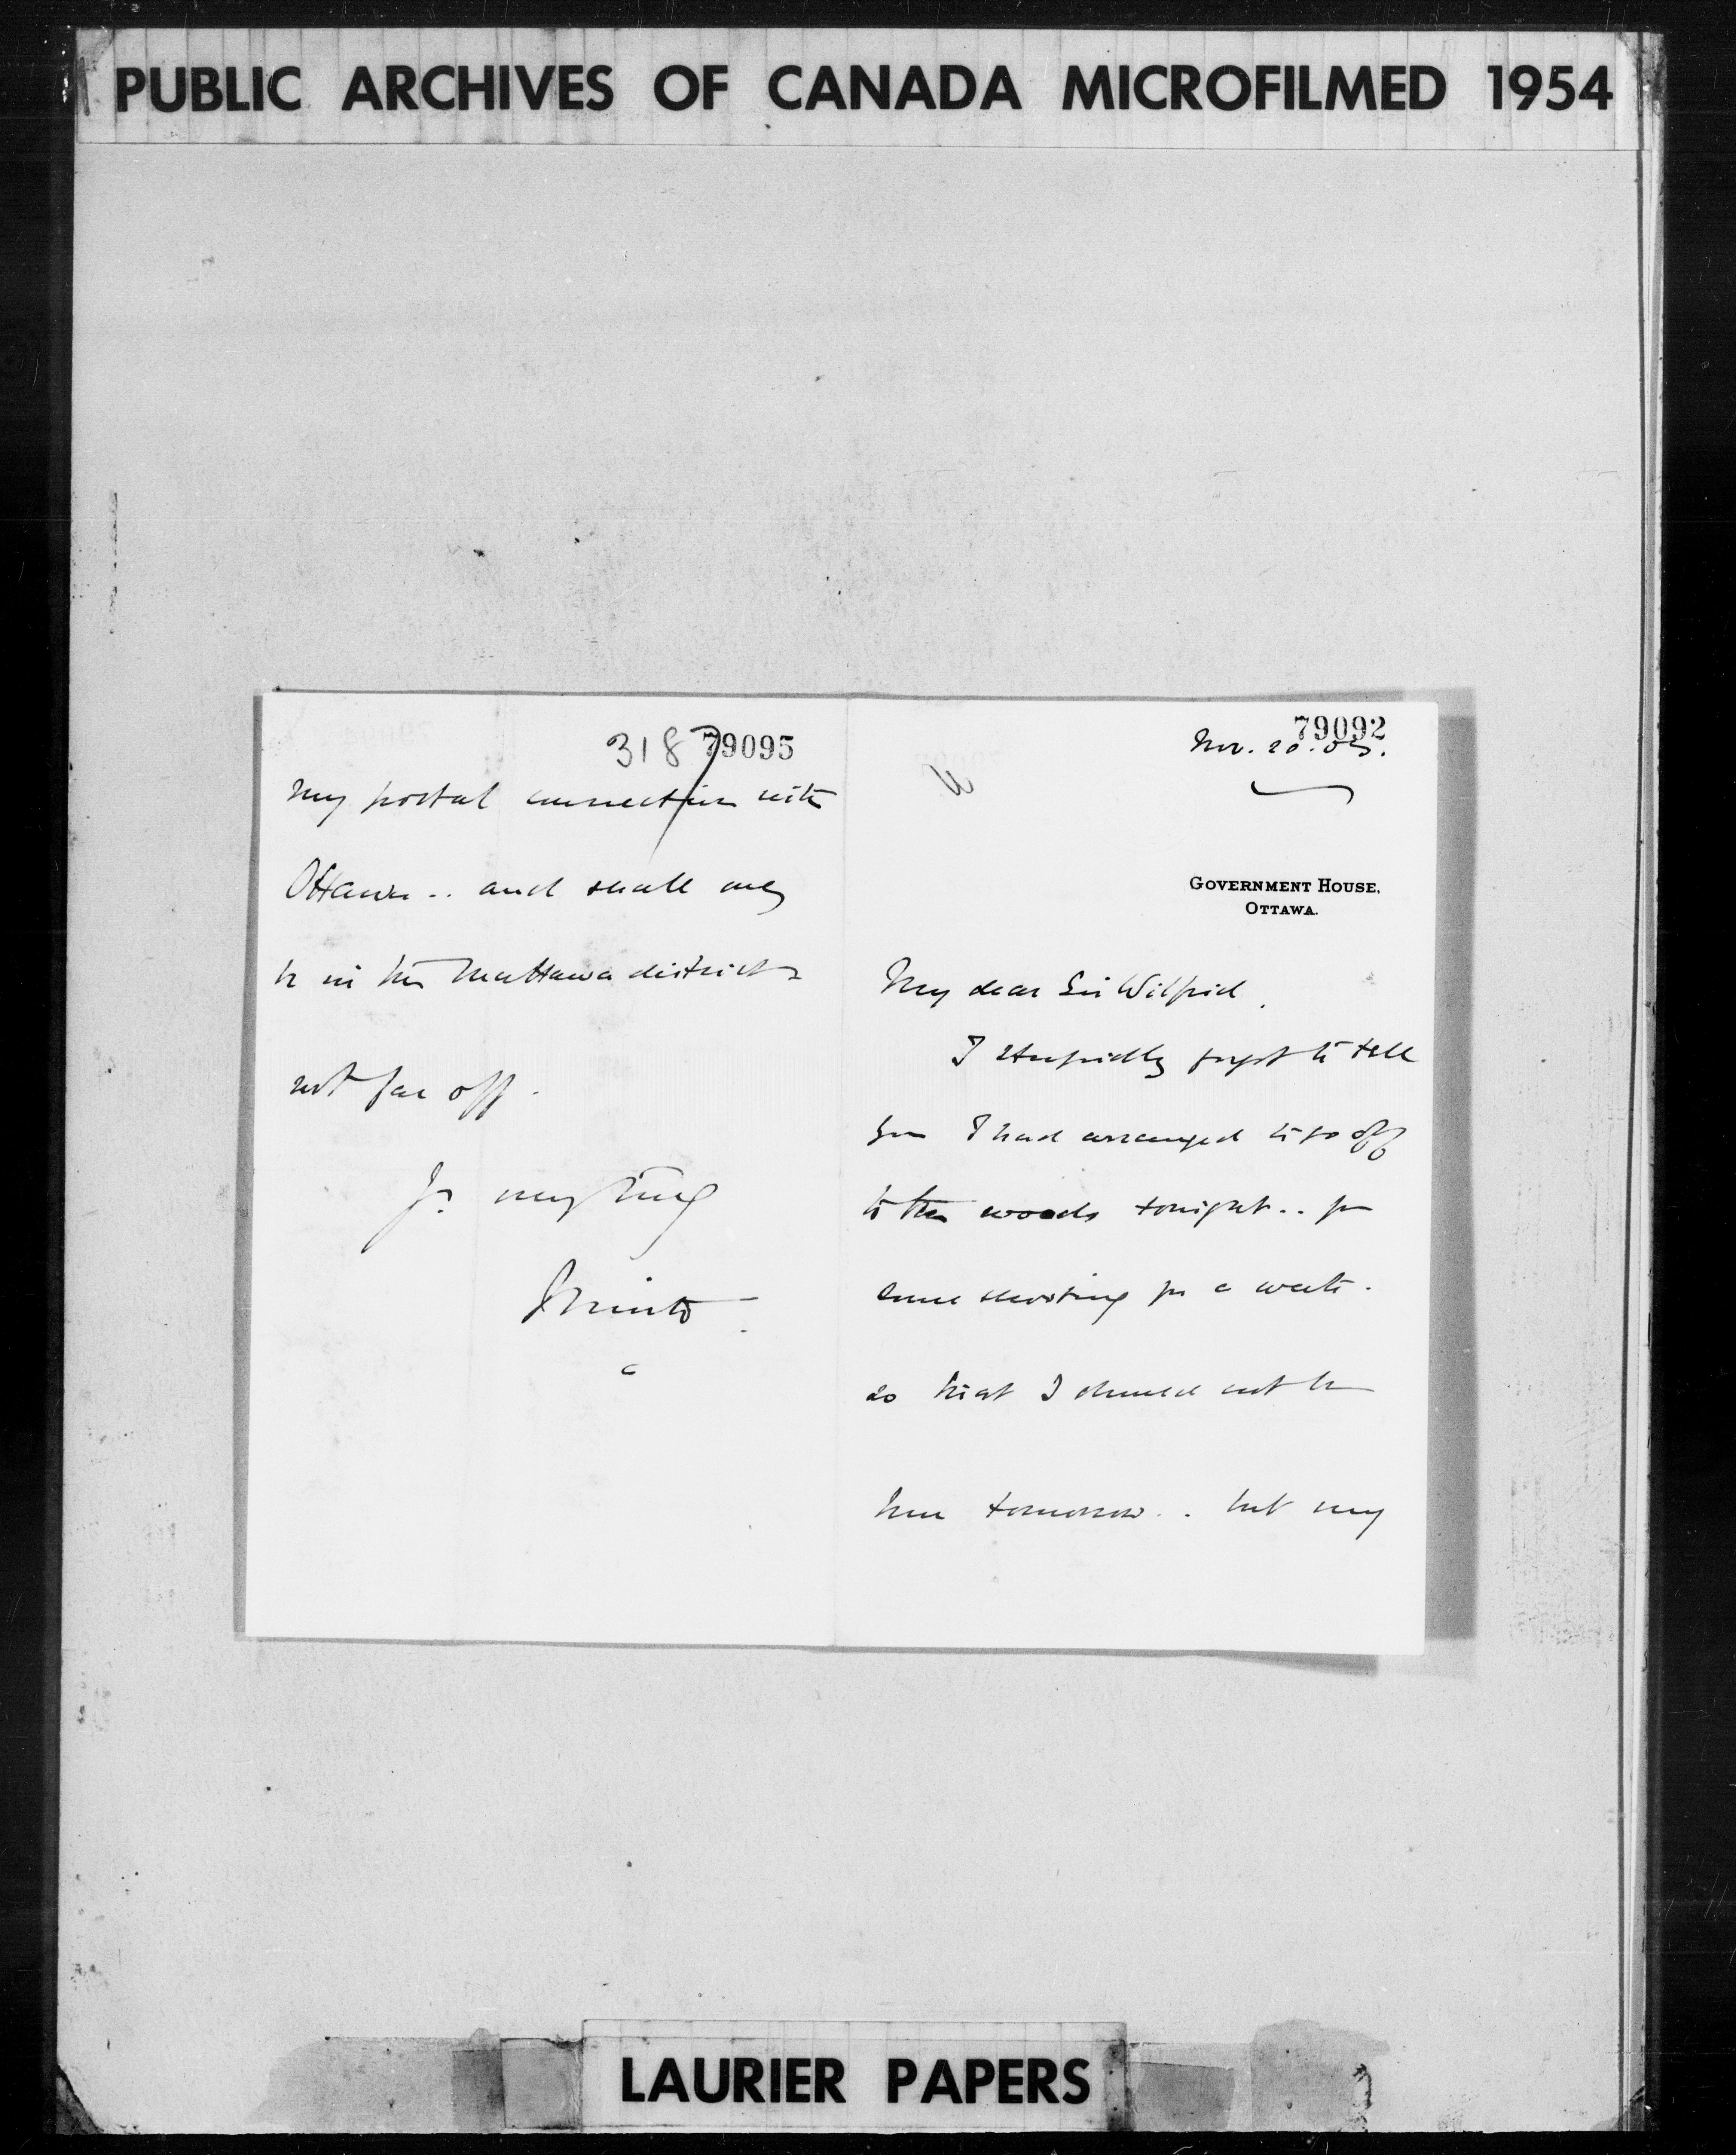 PUBLIC ARCHIVES OF CANADA MICROFILMED 1954
318 79095
my postal connection with
Ottawa .. and shall only
be in the Mattawa district
not far off.
Yrs very truly
Minto
79092
Nov. 20.
GOVERNMENT HOUSE,
OTTAWA.
My dear Sir Wilfrid,
I stupidly forgot to tell
you I had arranged to go off
to the woods tonight .. for
some shooting for a week.
so that I should not be
here tomorrow .. but my
LAURIER PAPERS